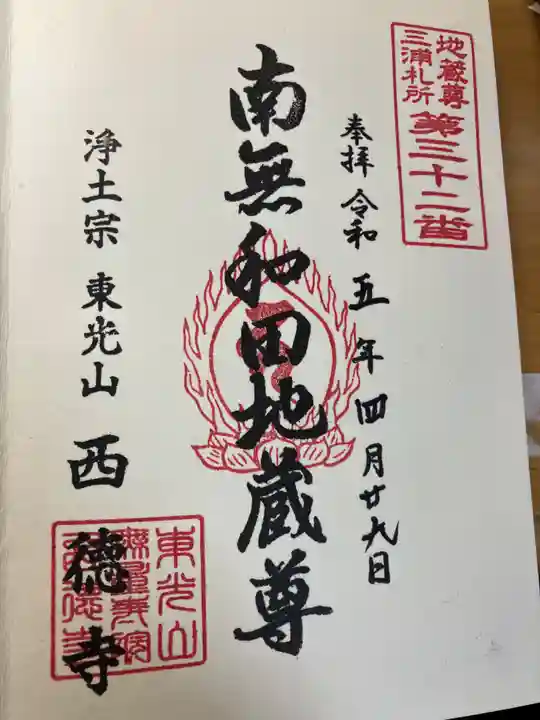 地蔵尊
三浦札所
第三十二番
奉拝 令和五年四月廿九日
南無和田地蔵尊
浄土宗 東光山 西徳寺
東光山
無量寿院
西徳寺